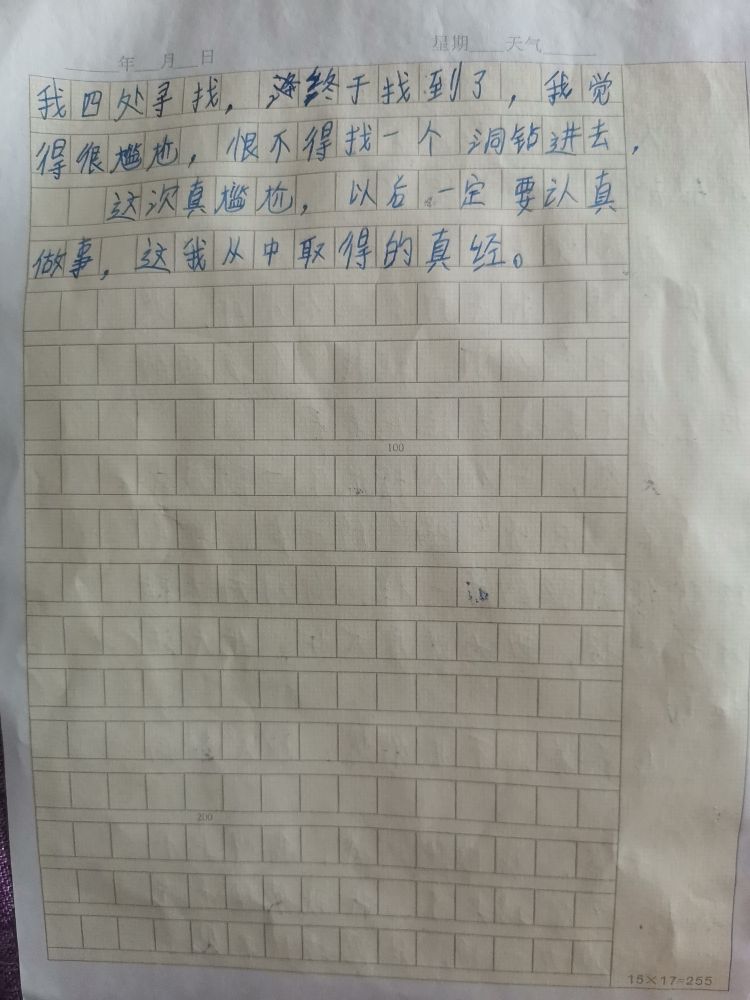 年 月 日 星期 天气
我四处寻找，终于找到了，我觉
得很尴尬，恨不得找一个洞钻进去，
这次真尴尬，以后一定要认真
做事，这我从中取得的真经。
100
200
15×17=255